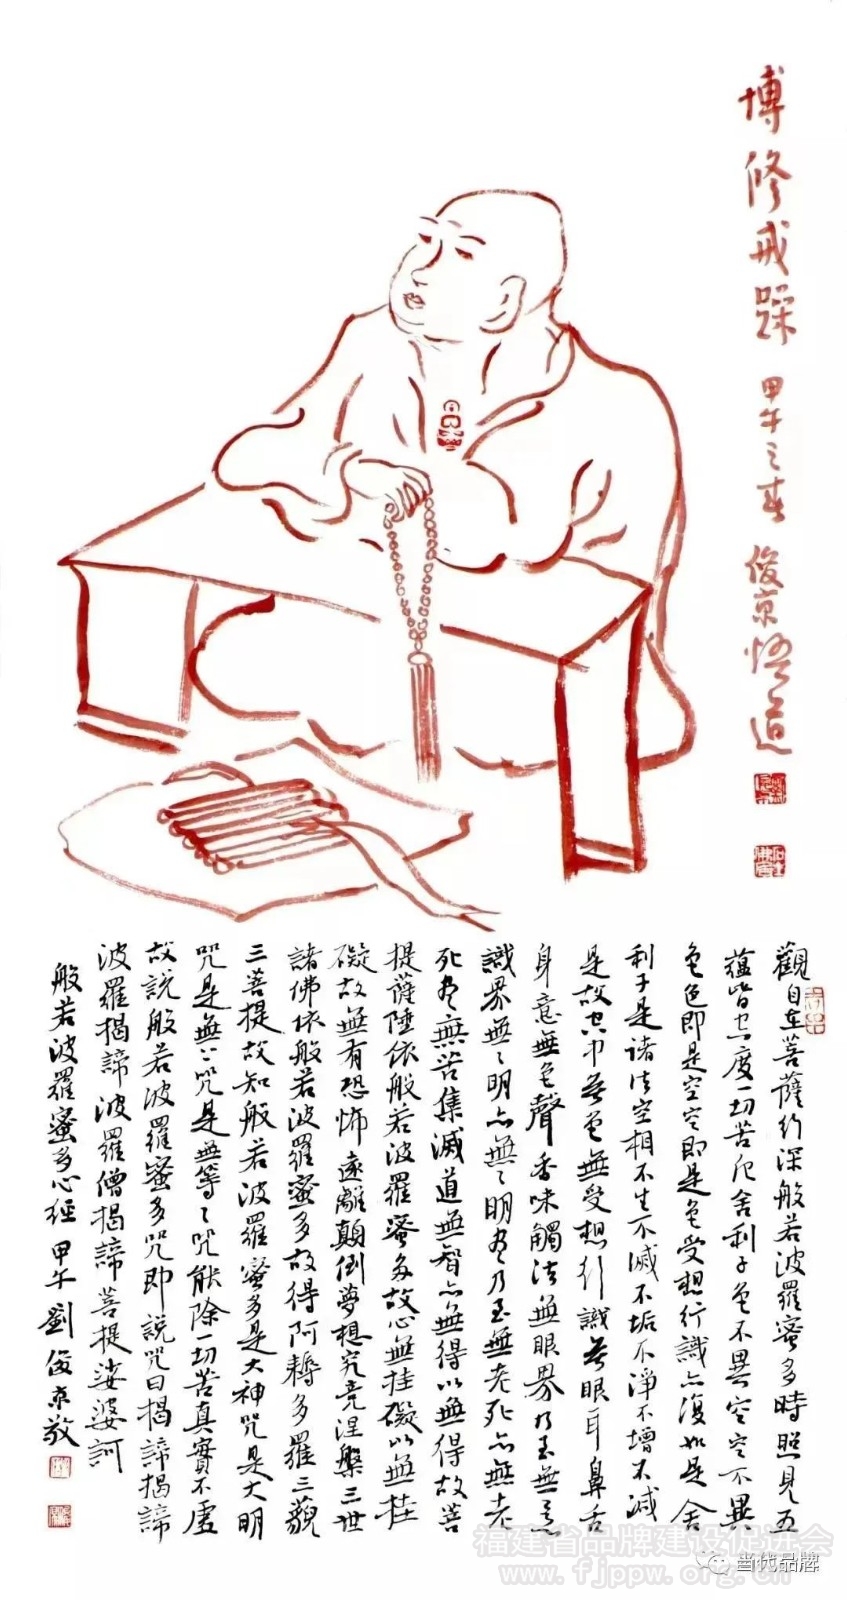 博修戒躁
甲午之春 俊京悟道
觀自在菩薩行深般若波羅蜜多時照見五
蘊皆空度一切苦厄舍利子色不異空空不異
色色即是空空即是色受想行識亦復如是舍
利子是諸法空相不生不滅不垢不淨不增不減
是故空中無色無受想行識無眼耳鼻舌
身意無色聲香味觸法無眼界乃至無意
識界無〻明亦無〻明盡乃至無老死亦無老
死盡無苦集滅道無智亦無得以無得故菩
提薩埵依般若波羅蜜多故心無挂礙以無挂
礙故無有恐怖遠離顛倒夢想究竟涅槃三世
諸佛依般若波羅蜜多故得阿耨多羅三藐
三菩提故知般若波羅蜜多是大神咒是大明
咒是無上咒是無等〻咒能除一切苦真實不虛
故說般若波羅蜜多咒即說咒曰揭諦揭諦
波羅揭諦波羅僧揭諦菩提娑婆訶
般若波羅蜜多心經 甲午 劉俊京敬
福建省品牌建设促进会
www.fjppw.org.cn
当代品牌